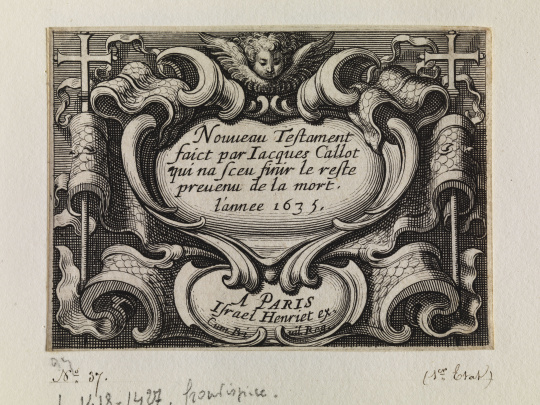 Nouueau Teſtament
faict par Iacques Callot
qui na ſceu finir le reſte
preuenu de la mort.
l'annee 1635.
A PARIS
Iſrael Henriet ex.
Cum Pri uil. Reg.
No. 37.
(1er Etat)
L. 1418-1427. frontispice.